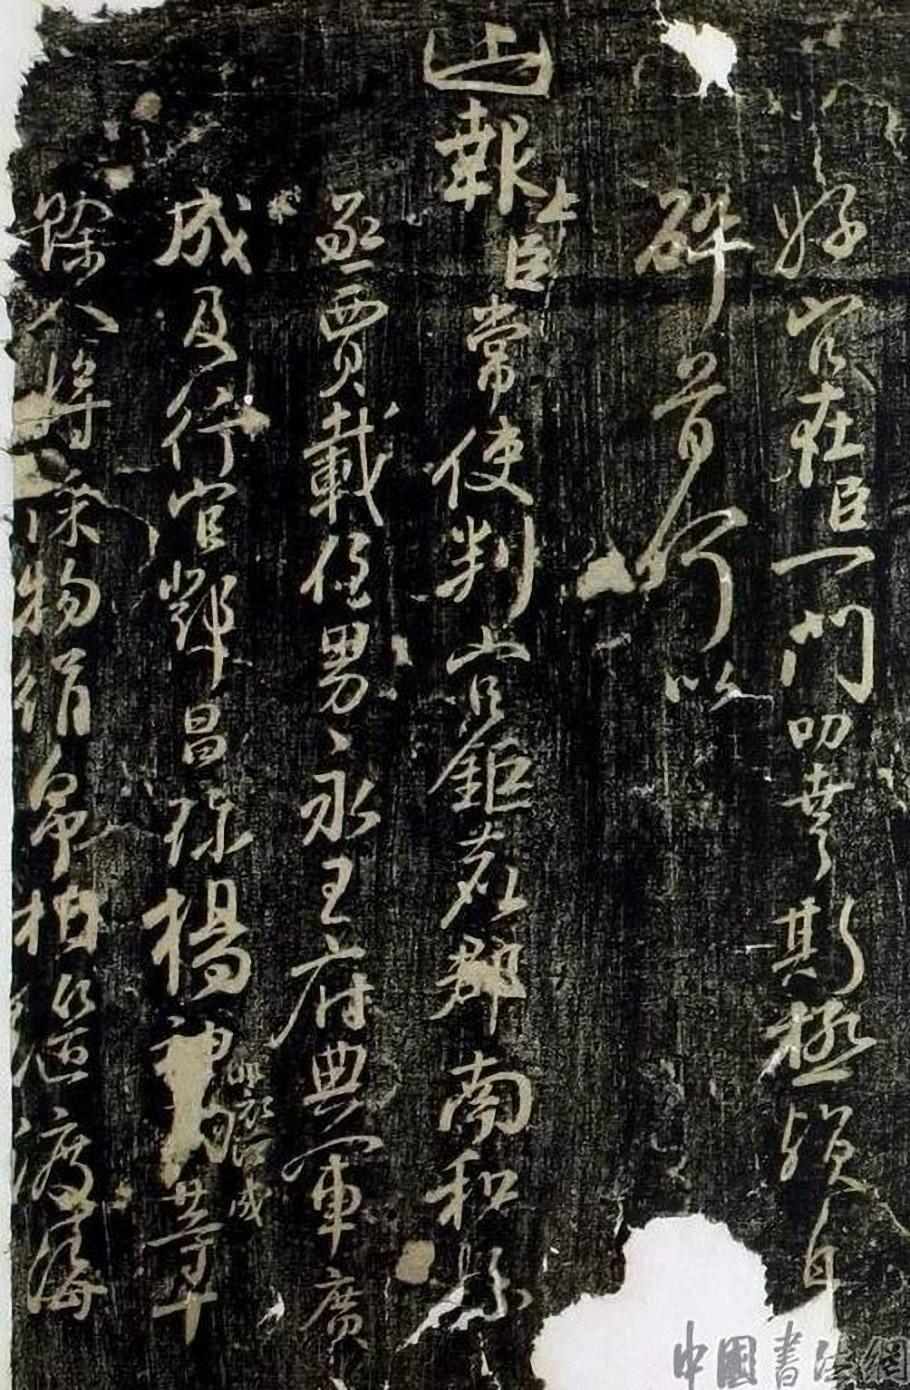 好官在臣一門叨幸斯極殞身
碎首何以
上報上臣常使判官鉅鹿郡南和縣
丞賈載侄男永王府典軍廣
成及行官鄧昌珍楊神功等十
餘人將綵物絹帛相繼渡海
中國書法網